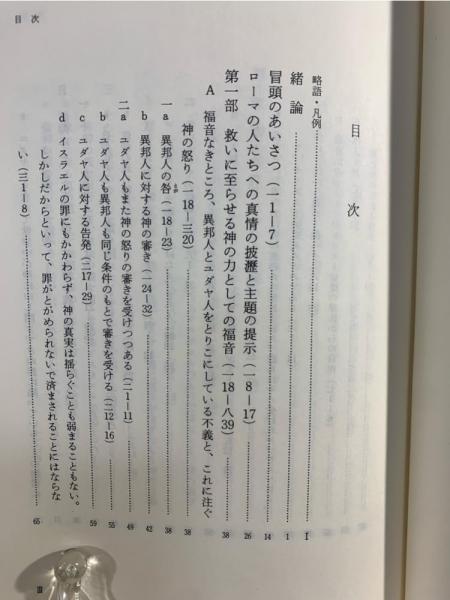 目次
目　次
略語・凡例……I
緒論……1
冒頭のあいさつ（一1―7）……14
ローマの人たちへの真情の披瀝と主題の提示（一8―17）……26
第一部　救いに至らせる神の力としての福音（一18―八39）……38
A　福音なきところ、異邦人とユダヤ人をとりこにしている不義と、これに注ぐ
神の怒り（一18―三20）……38
一a　異邦人の咎（一18―23）……38
b　異邦人に対する神の審き（一24―32）……42
二a　ユダヤ人もまた神の怒りの審きを受けつつある（二1―11）……49
b　ユダヤ人も異邦人も同じ条件のもとで審きを受ける（二12―16）……55
c　ユダヤ人に対する告発（二17―29）……59
d　イスラエルの罪にもかかわらず、神の真実は揺らぐことも弱まることもない。
しかしだからといって、罪がとがめられないで済まされることにはならな
い（三1―8）……65